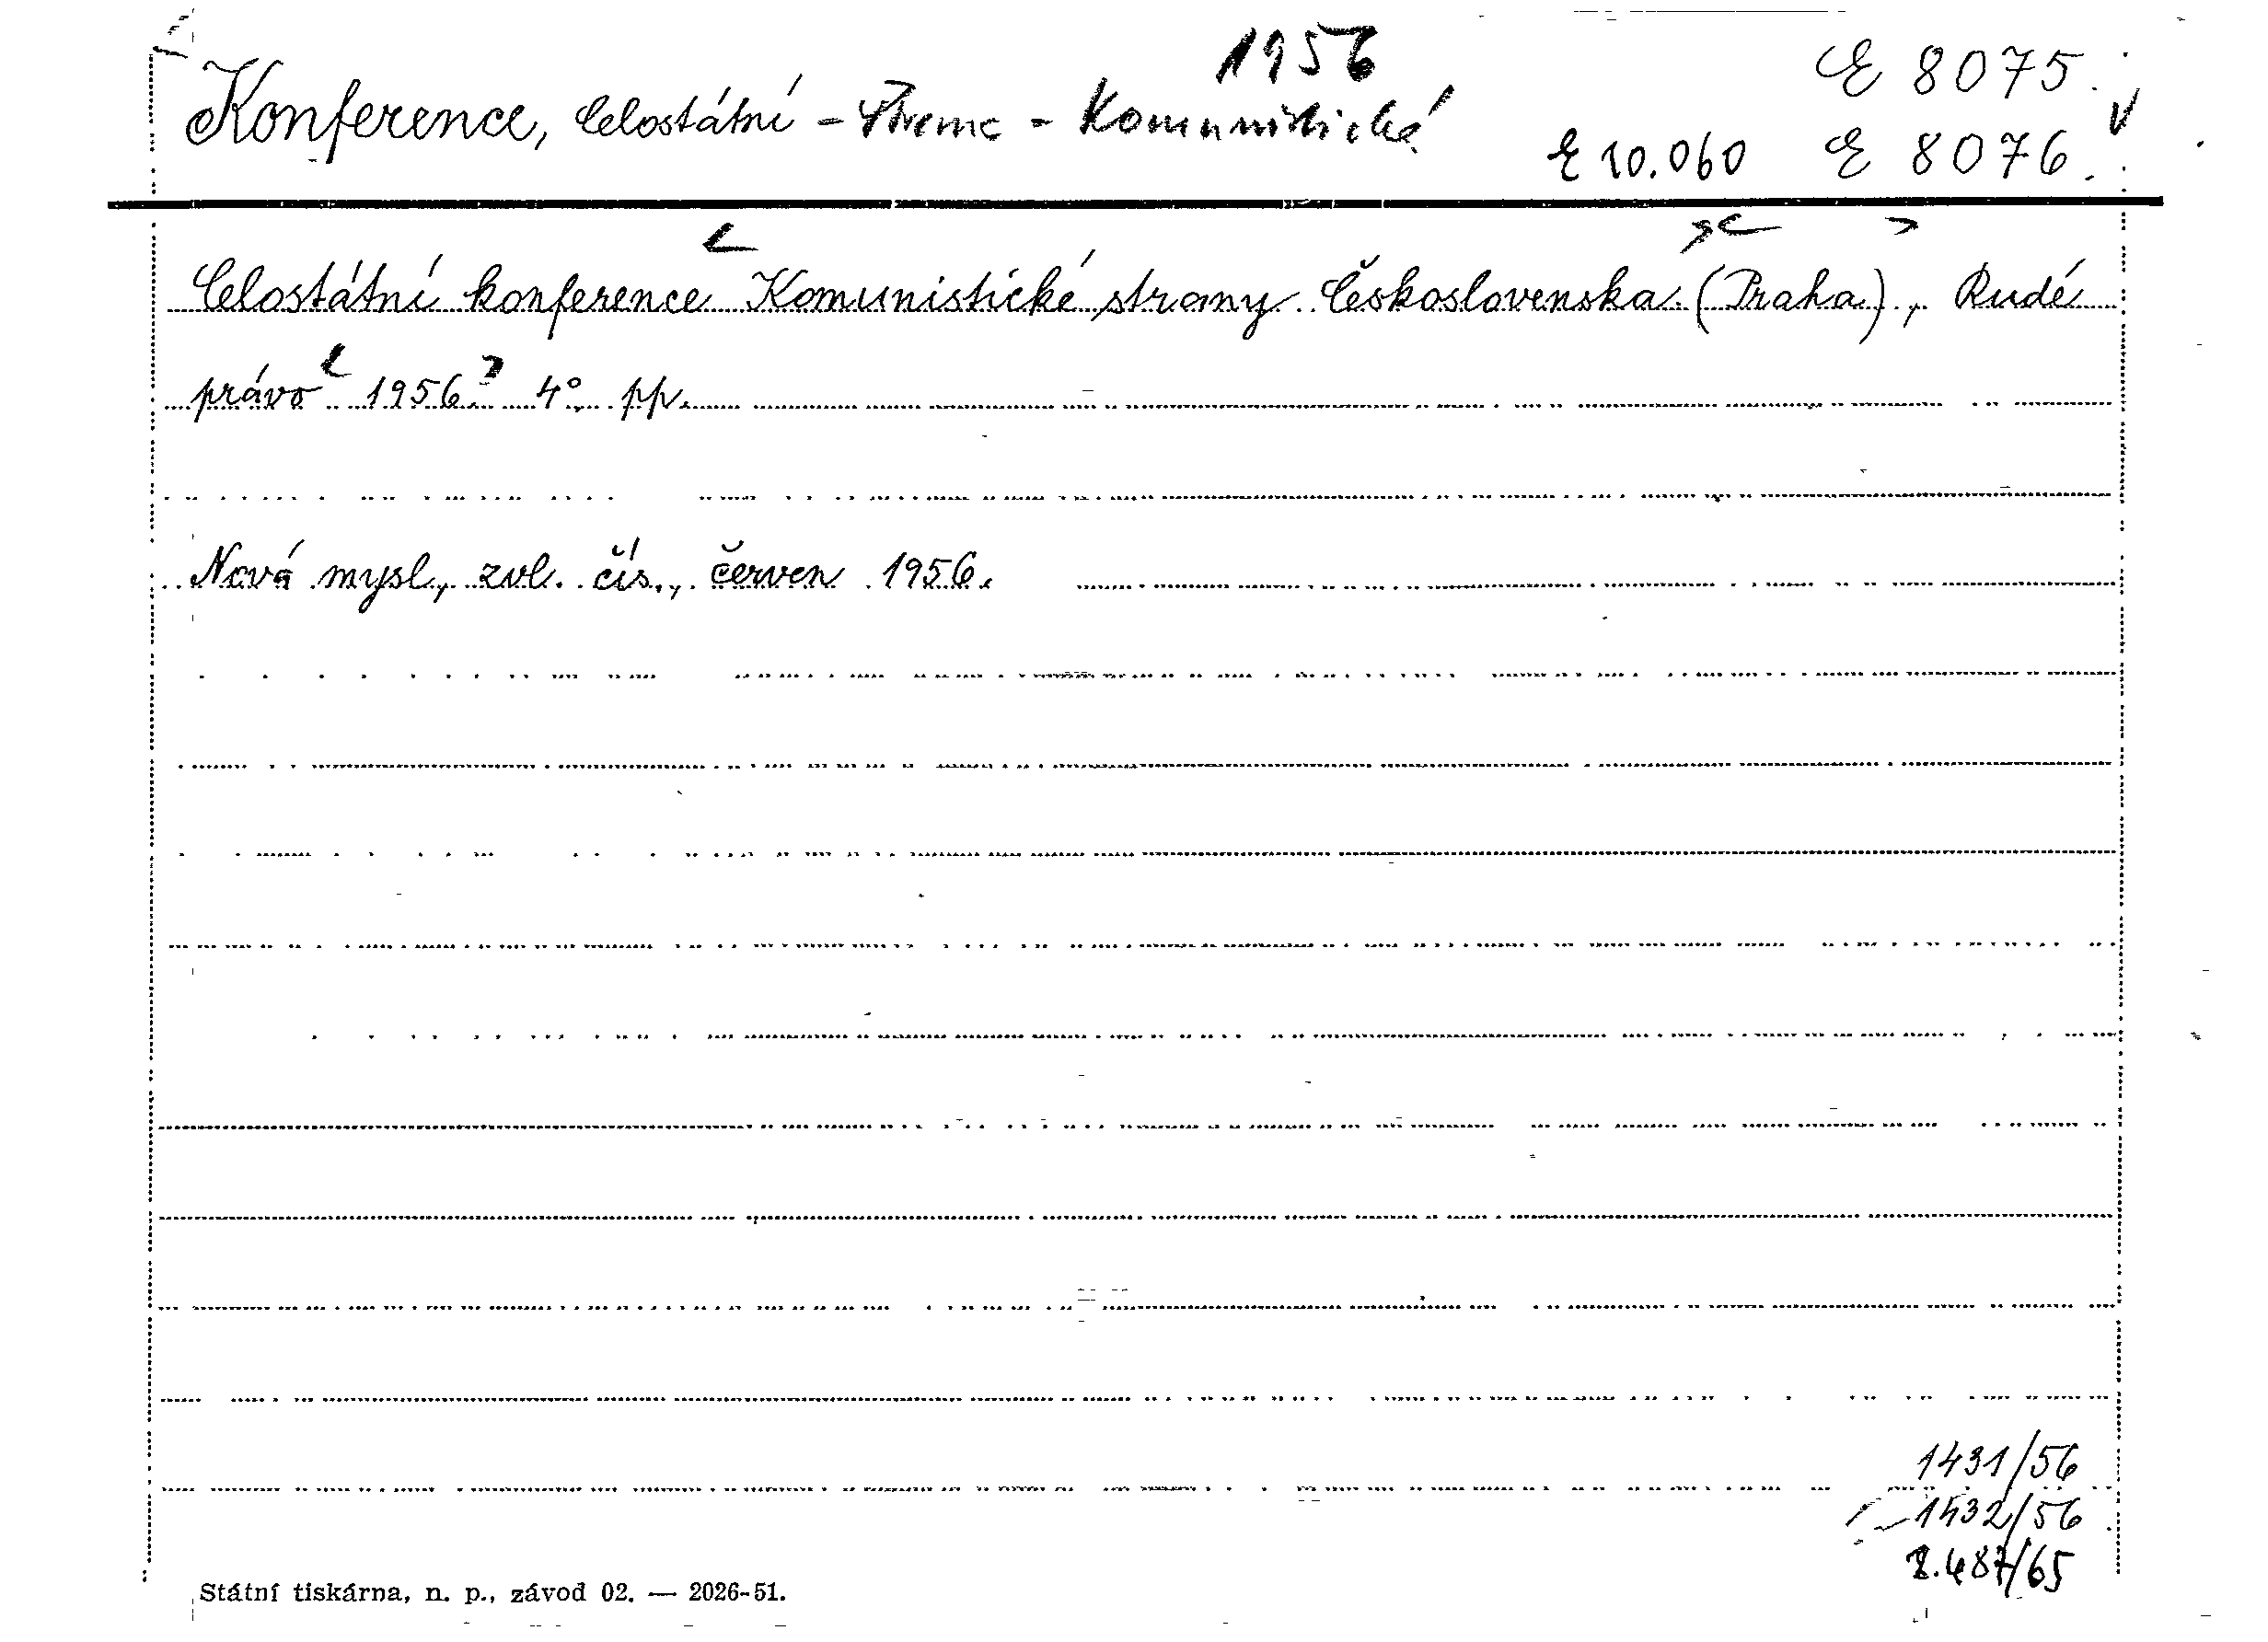 1956
E 8075.
Konference, Celostátní - - Komunistické
E 10.060 E 8076.
Celostátní konference Komunistické strany Československa (Praha), Rudé
právo 1956. 4°. pp.
Nová mysl, zvl. čís., červen 1956.
1431/56
1432/56
2.487/65
Státní tiskárna, n. p., závod 02. — 2026-51.